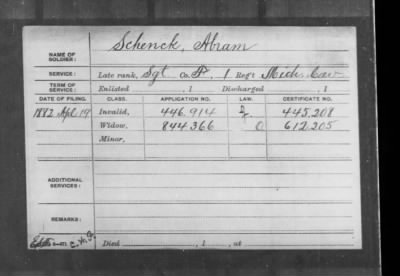 Schenck, Abram
NAME OF SOLDIER:
SERVICE: Late rank, Sgt Co. P, 1 Reg't Mich Cav
TERM OF SERVICE: Enlisted , 1 Discharged , 1
DATE OF FILING. CLASS. APPLICATION NO. LAW. CERTIFICATE NO.
1882 Apl 19 Invalid, 446.914 445.208
Widow, 844.366 O 612.205
Minor,
ADDITIONAL SERVICES:
REMARKS:
Died , 1 , at